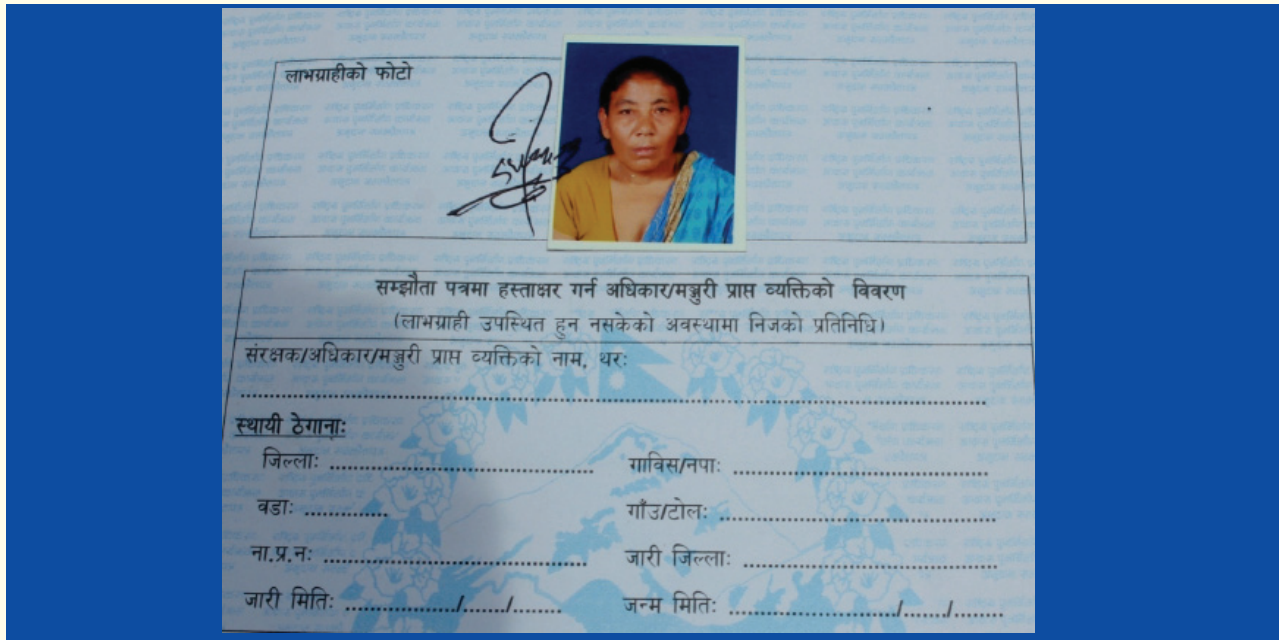 लाभग्राहीको फोटो
सम्झौता पत्रमा हस्ताक्षर गर्न अधिकार/मञ्जुरी प्राप्त व्यक्तिको विवरण
(लाभग्राही उपस्थित हुन नसकेको अवस्थामा निजको प्रतिनिधि)
संरक्षक/अधिकार/मञ्जुरी प्राप्त व्यक्तिको नाम, थरः
स्थायी ठेगानाः
जिल्लाः .......................................... गाविस/नपाः ..........................................
वडाः .............. गाँउ/टोलः ..........................................
ना.प्र.नः .......................................... जारी जिल्लाः ..........................................
जारी मितिः ................../......./........ जन्म मितिः ........................../......./........